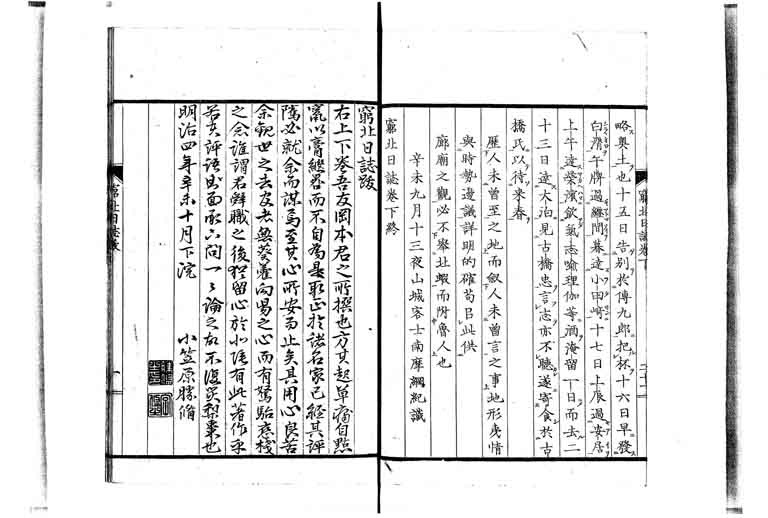 略奥土也十五日告別於傳九郎把杯十六日早發
白濱午牌過纏間暮達小田﨑十七日上辰過安居
上午達榮濱飲氣志喩理伽等酒淹留一日而去二
十三日達大泊見古橋忠言志亦不聴遂寄食於古
橋氏以待來春
歴人未曾至之地而叙人未曾言之事地形夷情
與時勢邊議詳明的確苟以此供
廊廟之觀必不舉北蝦而附魯人也
辛未九月十三夜山城客士南摩綱紀識
窮北日誌卷下終
窮北日誌卷下
二十一
窮北日誌跋
右上下卷吾友岡本君之所撰也方其起草痛自點
竄以膏繼晷而不自為是取正於諸名家已經其評
隲必就余而謀焉至其心所安而止矣其用心良苦
余觀世之去官者無葵藿向陽之心而有駑駘戀棧
之念誰謂君辭職之後猶留心於北陲有此著作乎
若夫評語則面承六問一々論之故不復災梨棗也
明治四年辛未十月下浣
小笠原勝脩
窮北日誌跋
一